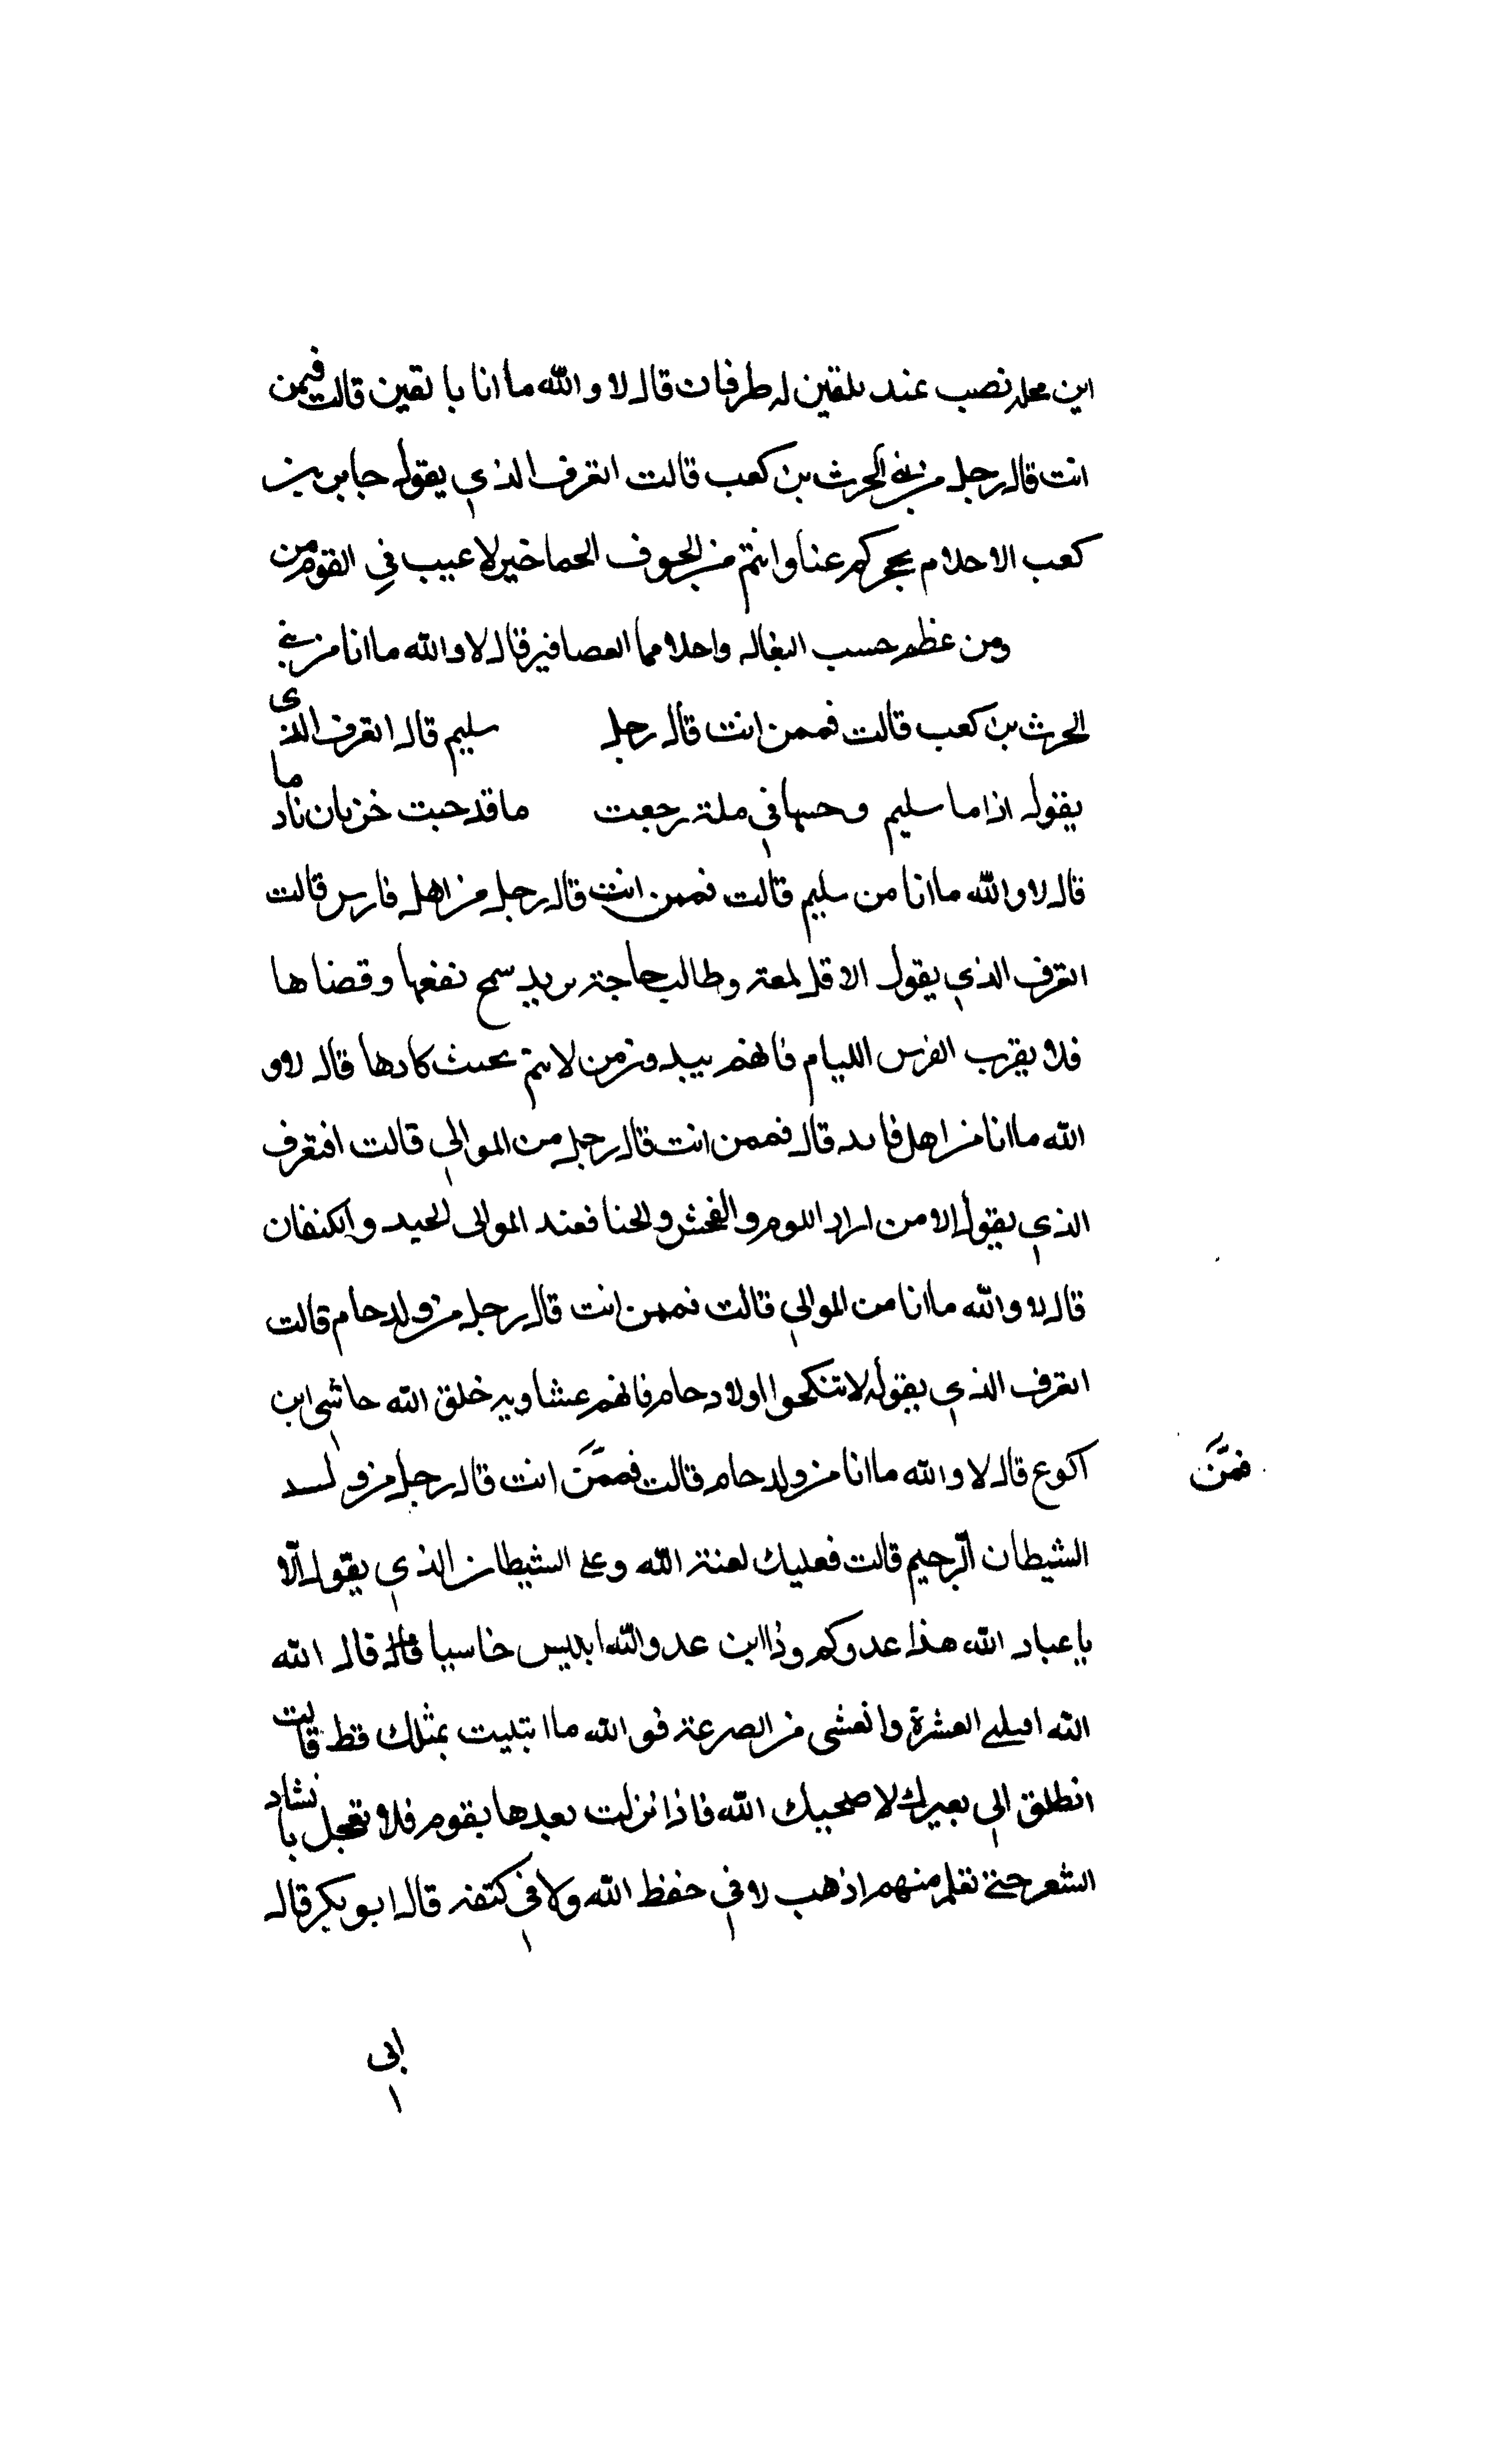 اين محله نصب عند بلقين له طرفان قال لا والله ما انا بالقين قالت فيمن
انت قال رجل من بني الحرث بن كعب قالت اتعرف الذي يقول حابس بن
كعب الاحلام يحجركم عنا وانتم من الجوف الحماخير لا عيب في القوم من
ومن عظم حسب البغال واحلام ما العصافير قال لا والله ما انا من بني
الحرث بن كعب قالت فممن انت قال رجل سليم قال اتعرف الذي
يقول اذا ما سليم في ملة رجعت ما قد حبت خزيان ناد ما
قال لا والله ما انا من سليم قالت فممن انت قال رجل من اهل فارس قالت
اتعرف الذي يقول الا قل لمعتر وطالب حاجة يريد سمح نفعها وقضاها
فلا يقرب الفرس الليام فانهم لا يتم بحيث كادها قال لا و
الله ما انا من اهل قال فممن انت قال رجل من الموالي قالت افتعرف
الذي يقول الا من اراد اللوم والفحش والخنا فعند الموالي الحيد والكنفان
قال لا والله ما انا من الموالي قالت فممن انت قال رجل من ولد حام قالت
اتعرف الذي يقول لا تنكحوا اولاد حام فانهم عشاويه خلق الله حاشى ابن
اكوع قال لا والله ما انا من ولد حام قالت فممن انت قال رجل من ولد
فممن
الشيطان الرجيم قالت فعليك لعنة الله وعلى الشيطان الذي يقول الا
يا عباد الله هذا عدوكم وذا ابن عدو الله ابليس خاسيا قال قال الله
الله اقيلي العشرة وانعشي من الصرعة فو الله ما ابتليت بمثلك قط قالت
انطلق الى بعيرك لا صحبك الله فاذا نزلت بعدها بقوم فلا تعجل بانشاد
الشعر حتى تعلم منهم اذهب لا في حفظ الله ولا في كنفه قال ابو بكر قال
ابي